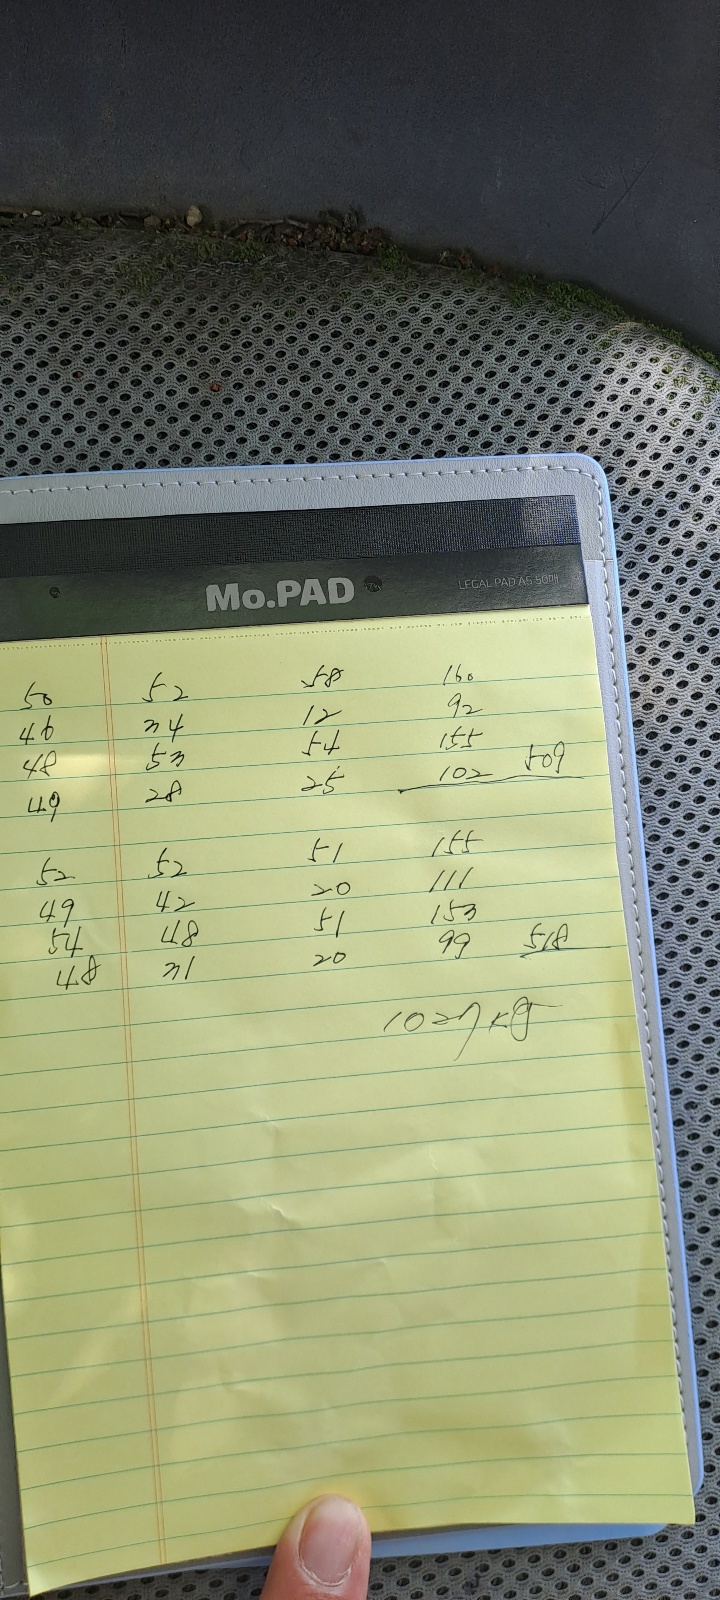 Mo.PAD LEGAL PAD A5 50매
50 52 58 160
46 34 12 92
48 53 54 155 509
49 28 25 102
52 52 51 155
49 42 20 111
54 48 51 153
48 31 20 99 518
1027 kg